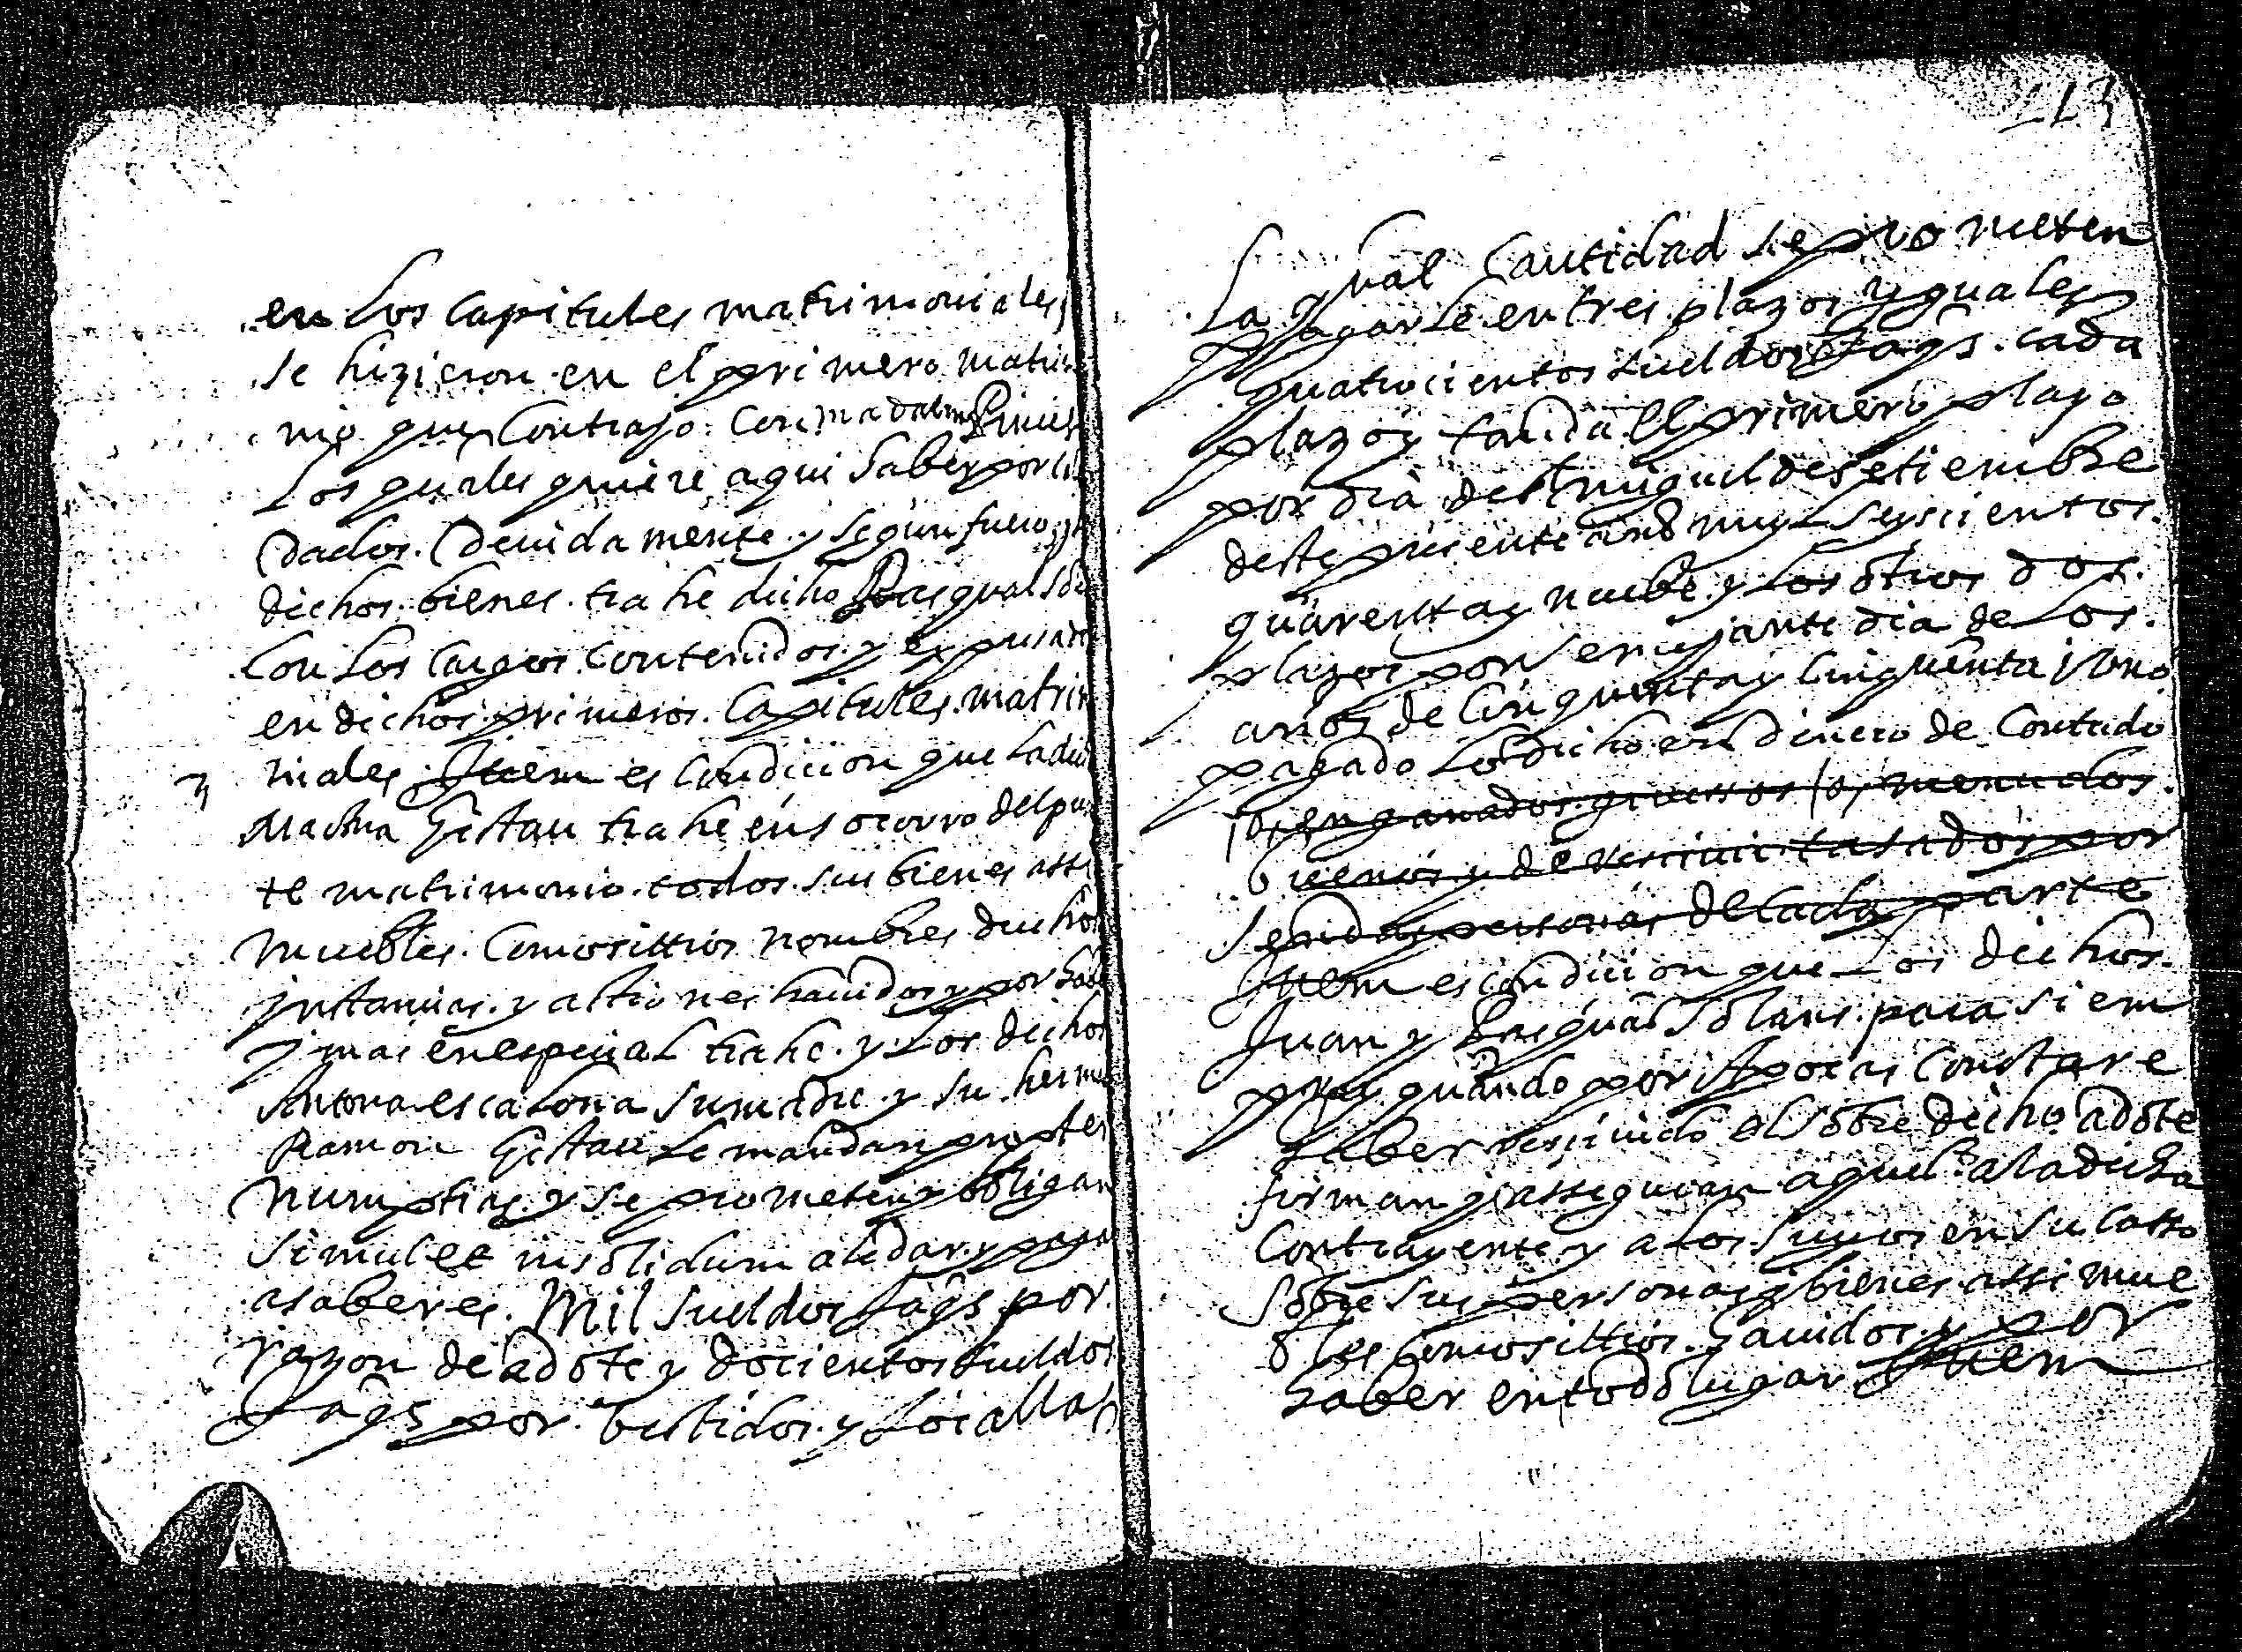 en los capitules matrimoniales
se hizieron en el primero matri
nio que contrajo con madalena
Los quales quiere aqui haber por
dados devidamente y segun fuero y
dichos bienes trahe dicho Pasqual
con los cargos contenidos y expresad
en dichos primeros capitules matri
niales Item es condicion que la dicha
Gistau trahe en socorro del pres
te matrimonio todos sus bienes assi
muebles como sittios nombres drechos
instancias y actiones havidos y por hab
y mas en especial trahe y los dichos
Antona escalona su madre y su herm
Ramon Gistau le mandan propter
numptias y se prometen y obligan
simul et insolidum a le dar y paga
a saber es Mil sueldos Jaqs por
razon de adote y docientos sueldos
Jaqs por bestidos y Joiallas
213
La qual cantidad se prometen
pagarle en tres plazos yguales
quatrocientos sueldos Jaqs. cada
plazo y tanda el primero plazo
por dia de St miguel de setiembre
deste presente año myl seyscientos
quarenta y nuebe y los otros dos
plazos por semejante dia de los
años de cinquenta y cinquenta y uno
pagado lo dicho en dinero de contado
en ganados gruessos o menudos
buenos y de rescivir tasados por
sendas personas de cada parte
Item es condicion que los dichos
Juan y Pasqual Solans para siem
pre y quando por Apocas constare
haber rescivido el sobre dicho adote
firman y asseguran aquel a la dicha
contrayente y a los suyos en su casso
sobre sus personas y bienes assi mue
bles como sittios havidos y por
haber en todo lugar Item